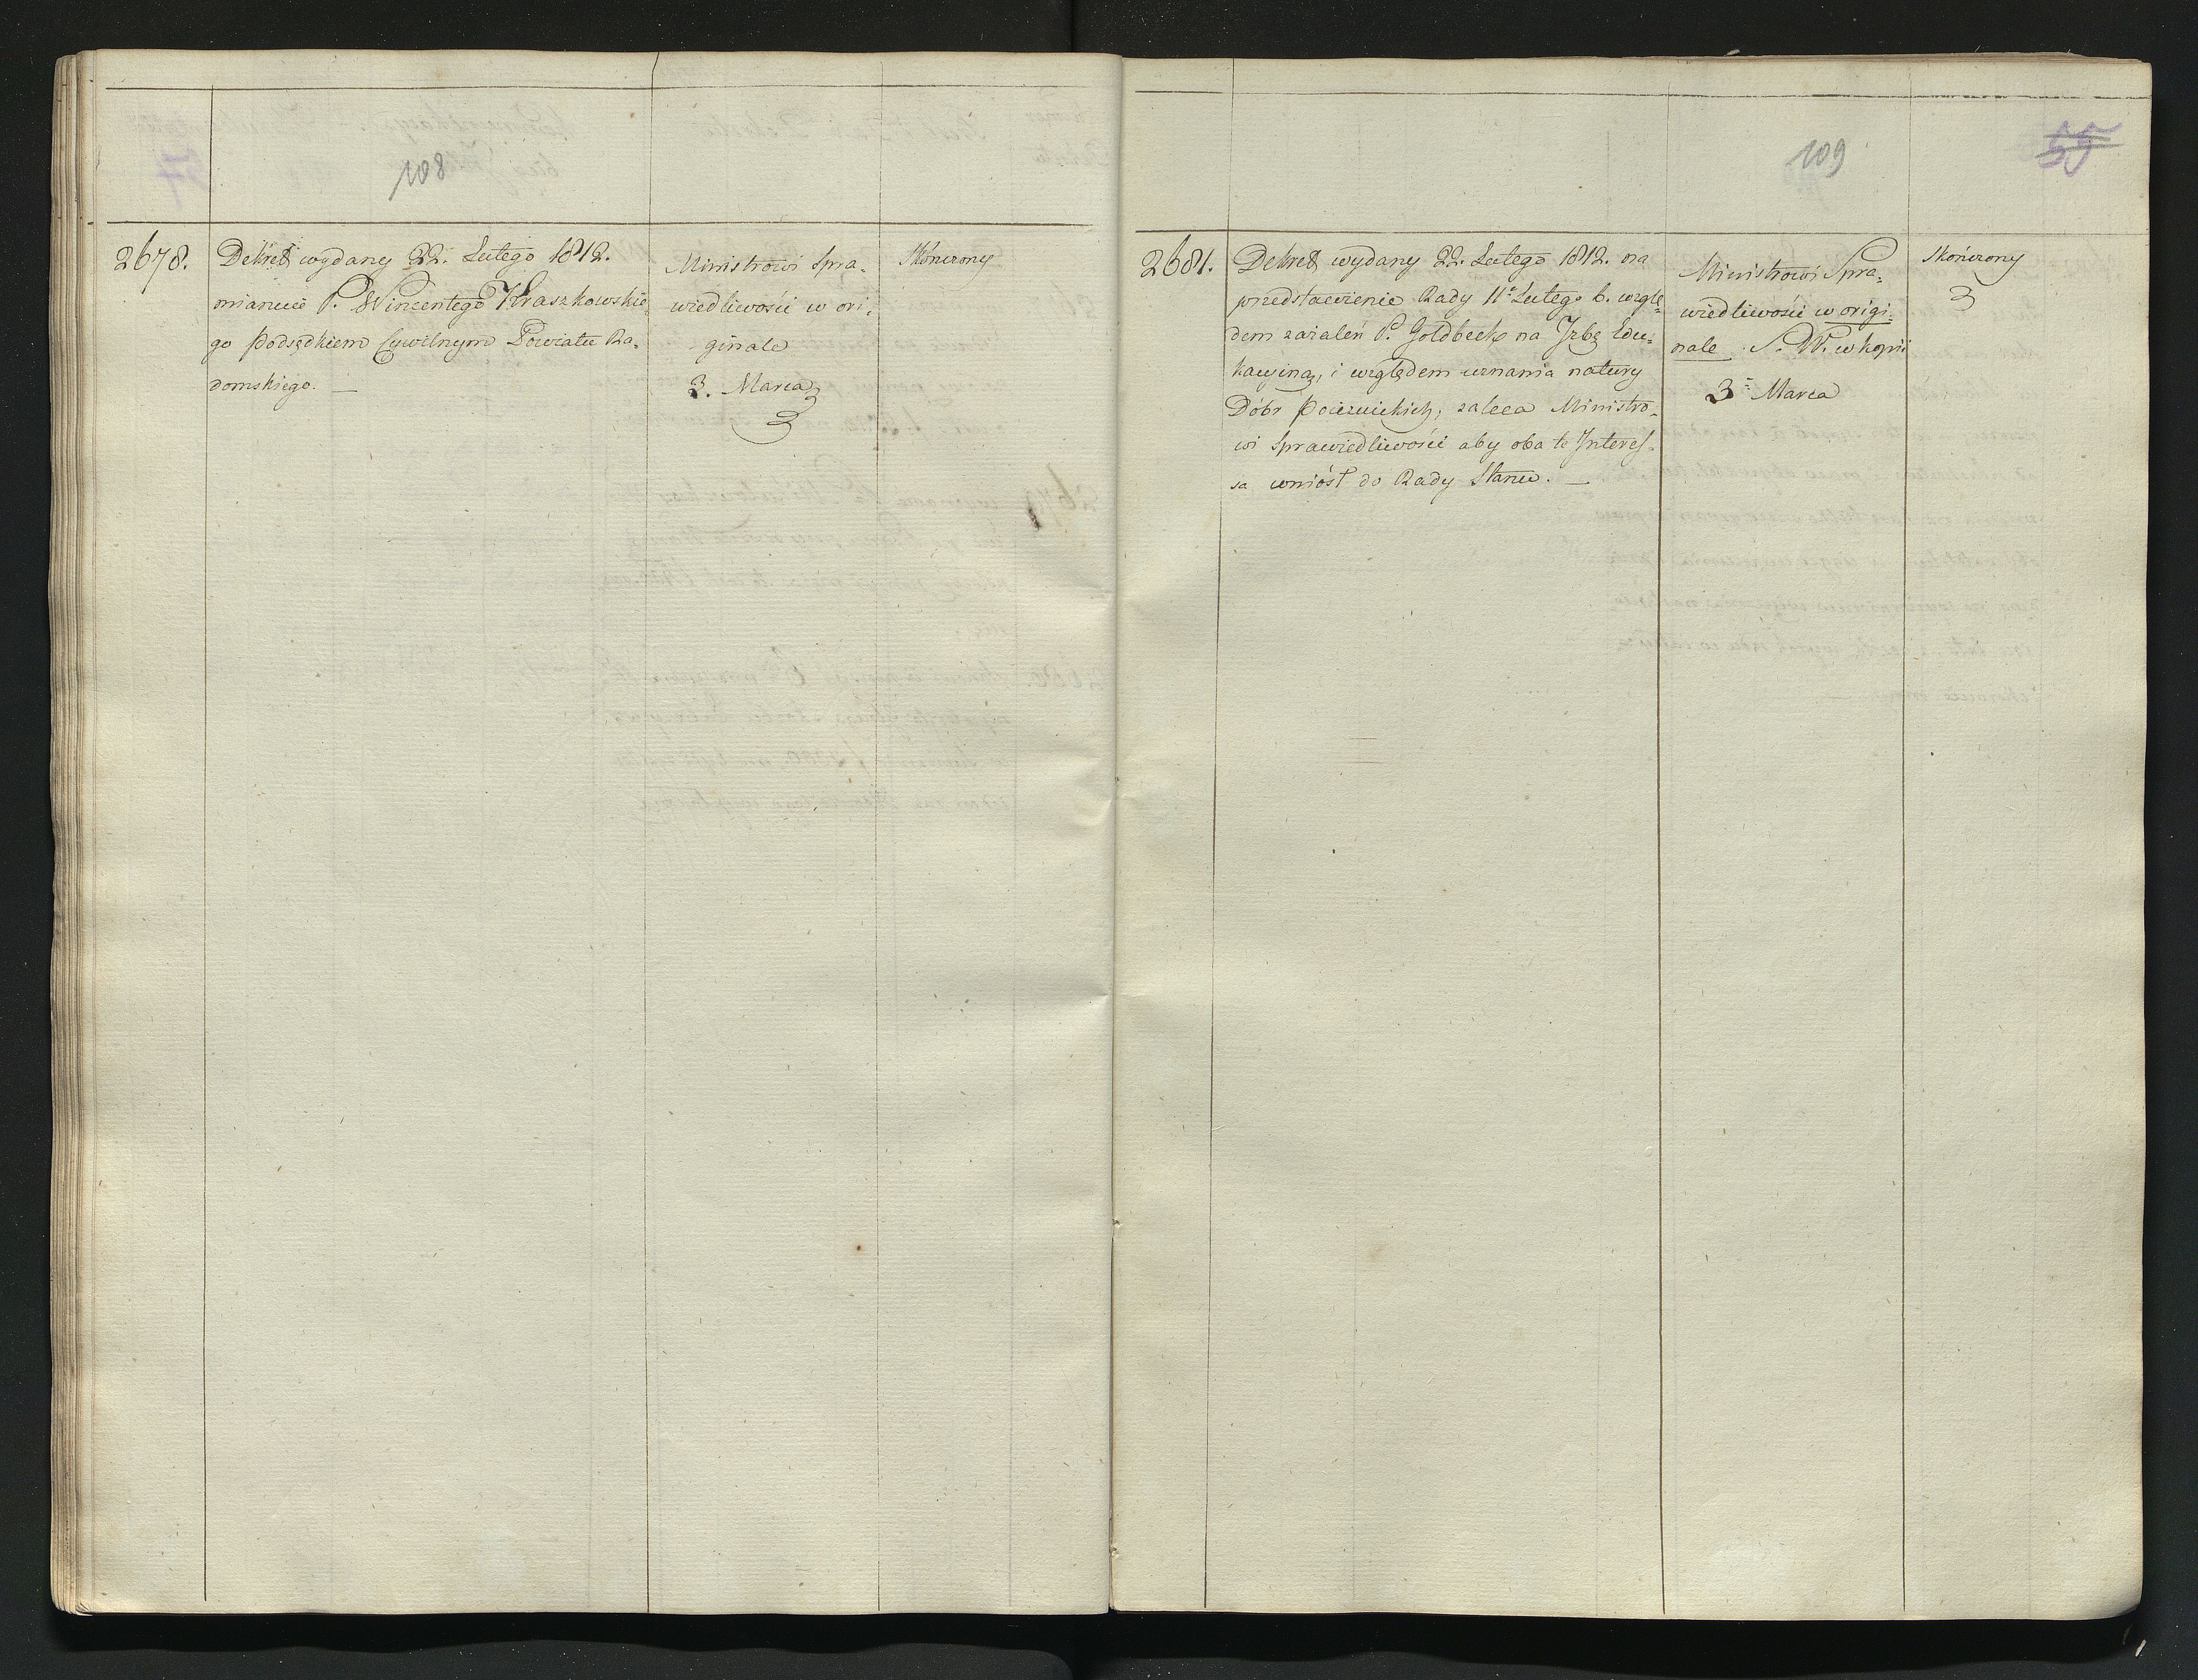 108
2678.
Dekret wydany 22. Lutego 1812.
mianuie P. Wincentego Kraszkowskie-
go Podsędkiem Cywilnym Powiatu Ra-
domskiego. —
Ministrowi Spra-
wiedliwości w ori-
ginale
3. Marca
Skończony
109
55
2681.
Dekret wydany 22. Lutego 1812. na
przedstawienie Rady 11. Lutego b. wzglę-
dem zażaleń P. Goldbeck na Jzbę Edu-
kacyiną, i względem uznania natury
Dóbr Poiezuickich, zaleca Ministro-
wi Sprawiedliwości aby oba te Jnteres-
sa wniósł do Rady Stanu. —
Ministrowi Spra-
wiedliwości w origi-
nale. S. W. w kopii
3 Marca
Skończony
3